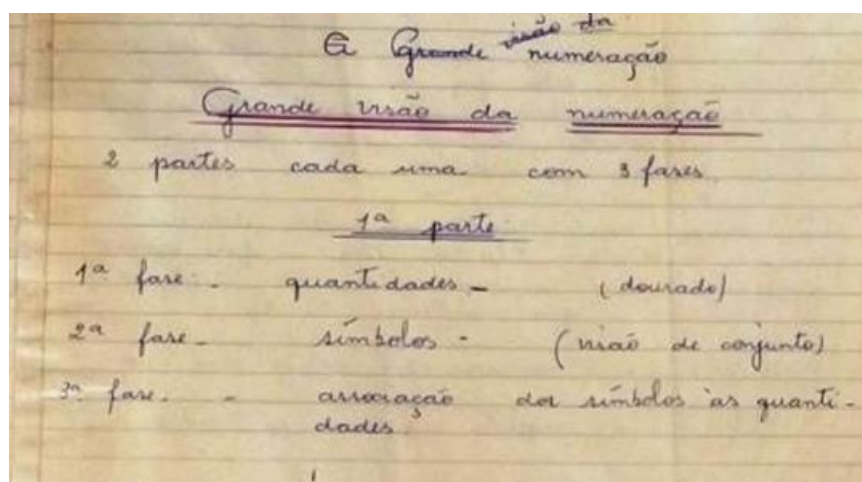 A Grande visão da numeração
Grande visão da numeração
2 partes cada uma com 3 fases
1ª parte
1ª fase - quantidades - (dourado)
2ª fase - símbolos - (visão de conjunto)
3ª fase - associação dos símbolos às quanti-
dades